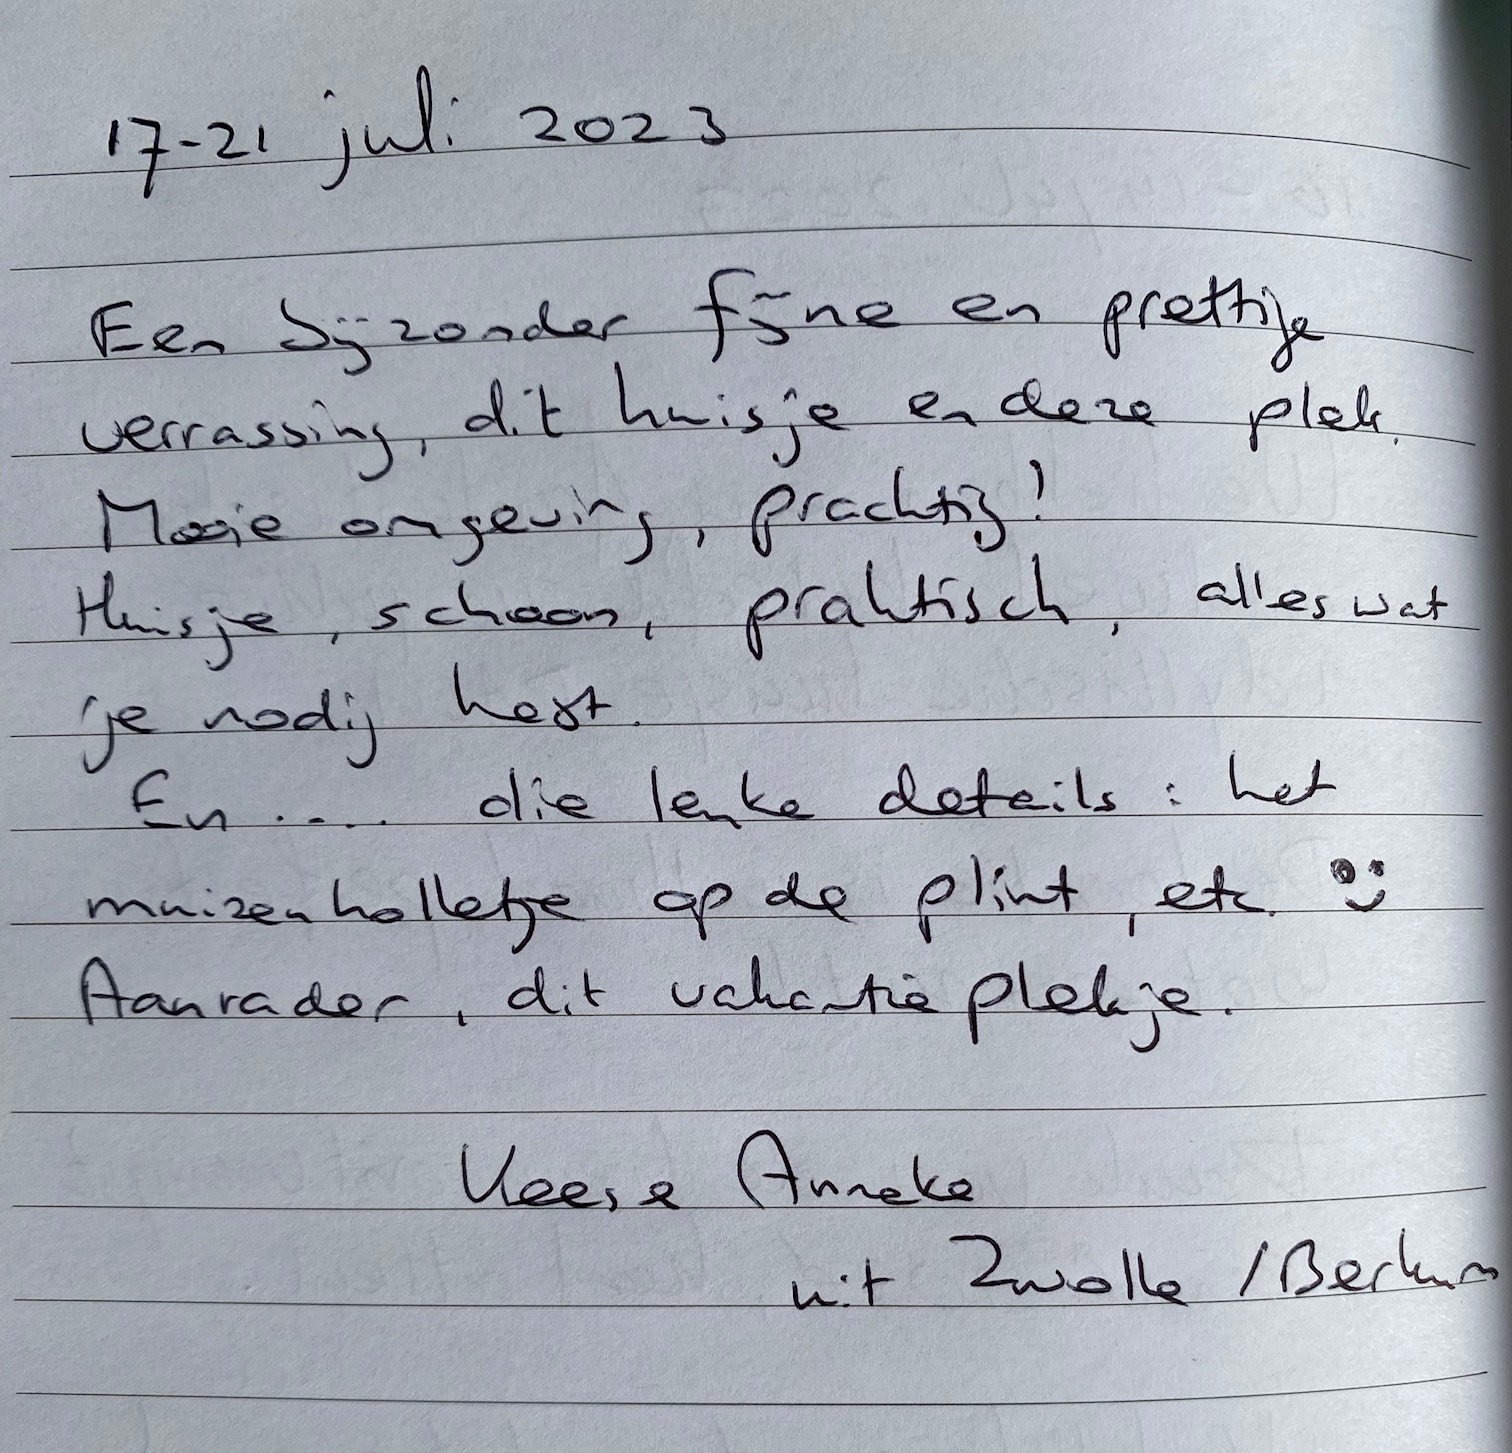 17-21 juli 2023
Een bijzonder fijne en prettige
verrassing, dit huisje en deze plek.
Mooie omgeving, prachtig!
Huisje, schoon, praktisch, alles wat
je nodig hebt.
En .... die leuke details : het
muizenholletje op de plint, etc. :)
Aanrader, dit vakantieplekje.
Anneke
uit Zwolle / Berkum